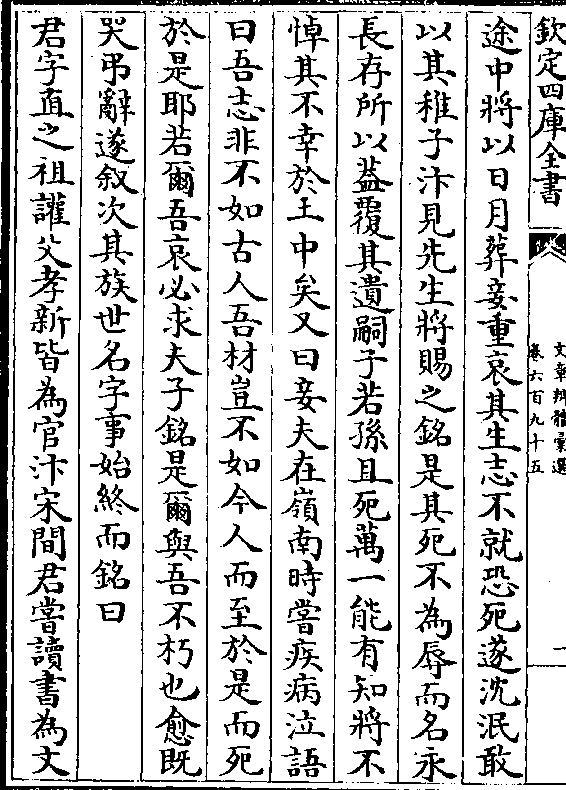 欽定四庫全書
文章辨體彙選
卷六百九十五
一
途中將以日月葬妾重哀其生志不就恐死遂沈泯敢
以其稚子汴見先生將賜之銘是其死不為辱而名永
長存所以葢覆其遺嗣子若孫且死萬一能有知將不
悼其不幸於土中矣又曰妾夫在嶺南時嘗疾病泣語
曰吾志非不如古人吾材豈不如今人而至於是而死
於是耶若爾吾哀必求夫子銘是爾與吾不朽也愈既
哭弔辭遂叙次其族世名字事始終而銘曰
君字直之祖讙父孝新皆為官汴宋間君嘗讀書為文